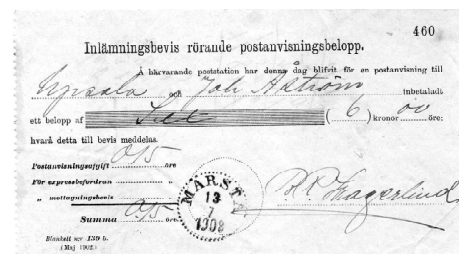 460
Inlämningsbevis rörande postanvisningsbelopp.
Å härvarande poststation har denna dag blifvit för en postanvisning till
Upsala och Joh Åström inbetaldt
ett belopp af Sex (6) kronor 00 öre:
hvarå detta till bevis meddelas.
Postanvisningsafgift 0,15 öre
För expressbefordran
„ mottagningsbevis
Summa 0,15
MÄRSTA
13
7
1908
Blankett n:r 139 b.
(Maj 1902.)